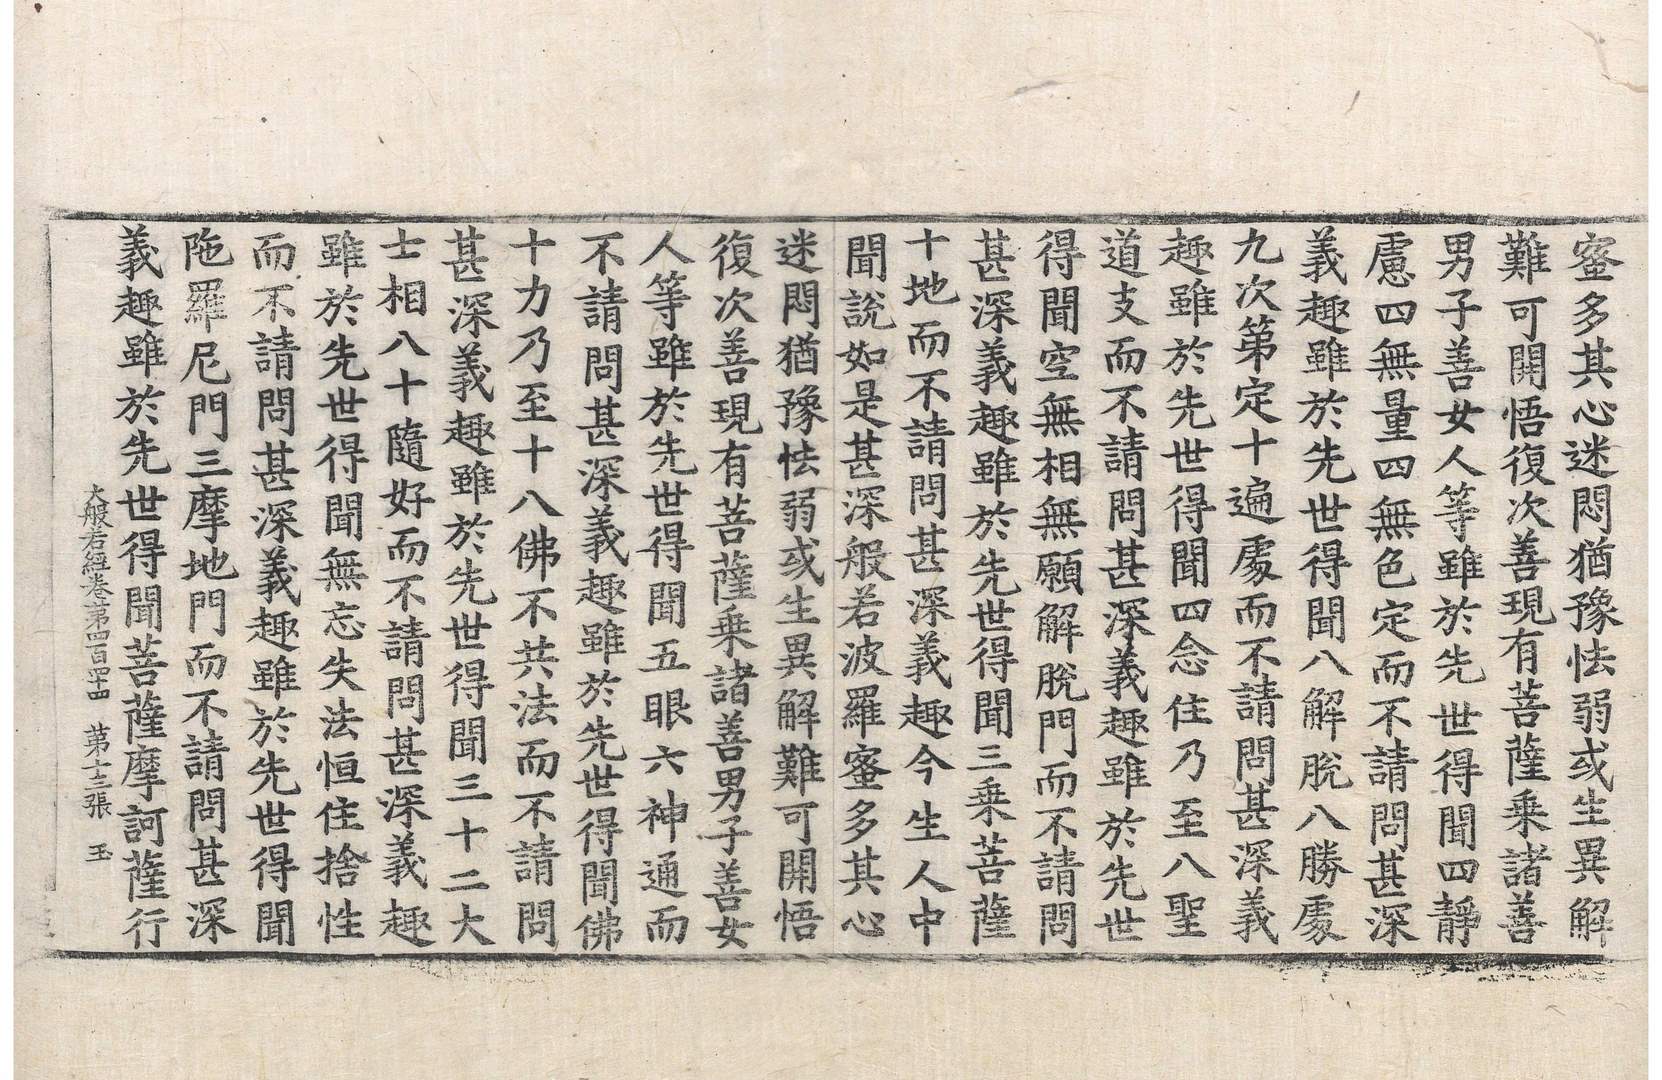 蜜多其心迷悶猶豫怯弱或生異解
難可開悟復次善現有菩薩乘諸善
男子善女人等雖於先世得聞四靜
慮四無量四無色定而不請問甚深
義趣雖於先世得聞八解脫八勝處
九次第定十遍處而不請問甚深義
趣雖於先世得聞四念住乃至八聖
道支而不請問甚深義趣雖於先世
得聞空無相無願解脫門而不請問
甚深義趣雖於先世得聞三乘菩薩
十地而不請問甚深義趣今生人中
聞說如是甚深般若波羅蜜多其心
迷悶猶豫怯弱或生異解難可開悟
復次善現有菩薩乘諸善男子善女
人等雖於先世得聞五眼六神通而
不請問甚深義趣雖於先世得聞佛
十力乃至十八佛不共法而不請問
甚深義趣雖於先世得聞三十二大
士相八十隨好而不請問甚深義趣
雖於先世得聞無忘失法恒住捨性
而不請問甚深義趣雖於先世得聞
陁羅尼門三摩地門而不請問甚深
義趣雖於先世得聞菩薩摩訶薩行
大般若經卷第四百四十四 第十三張 玉